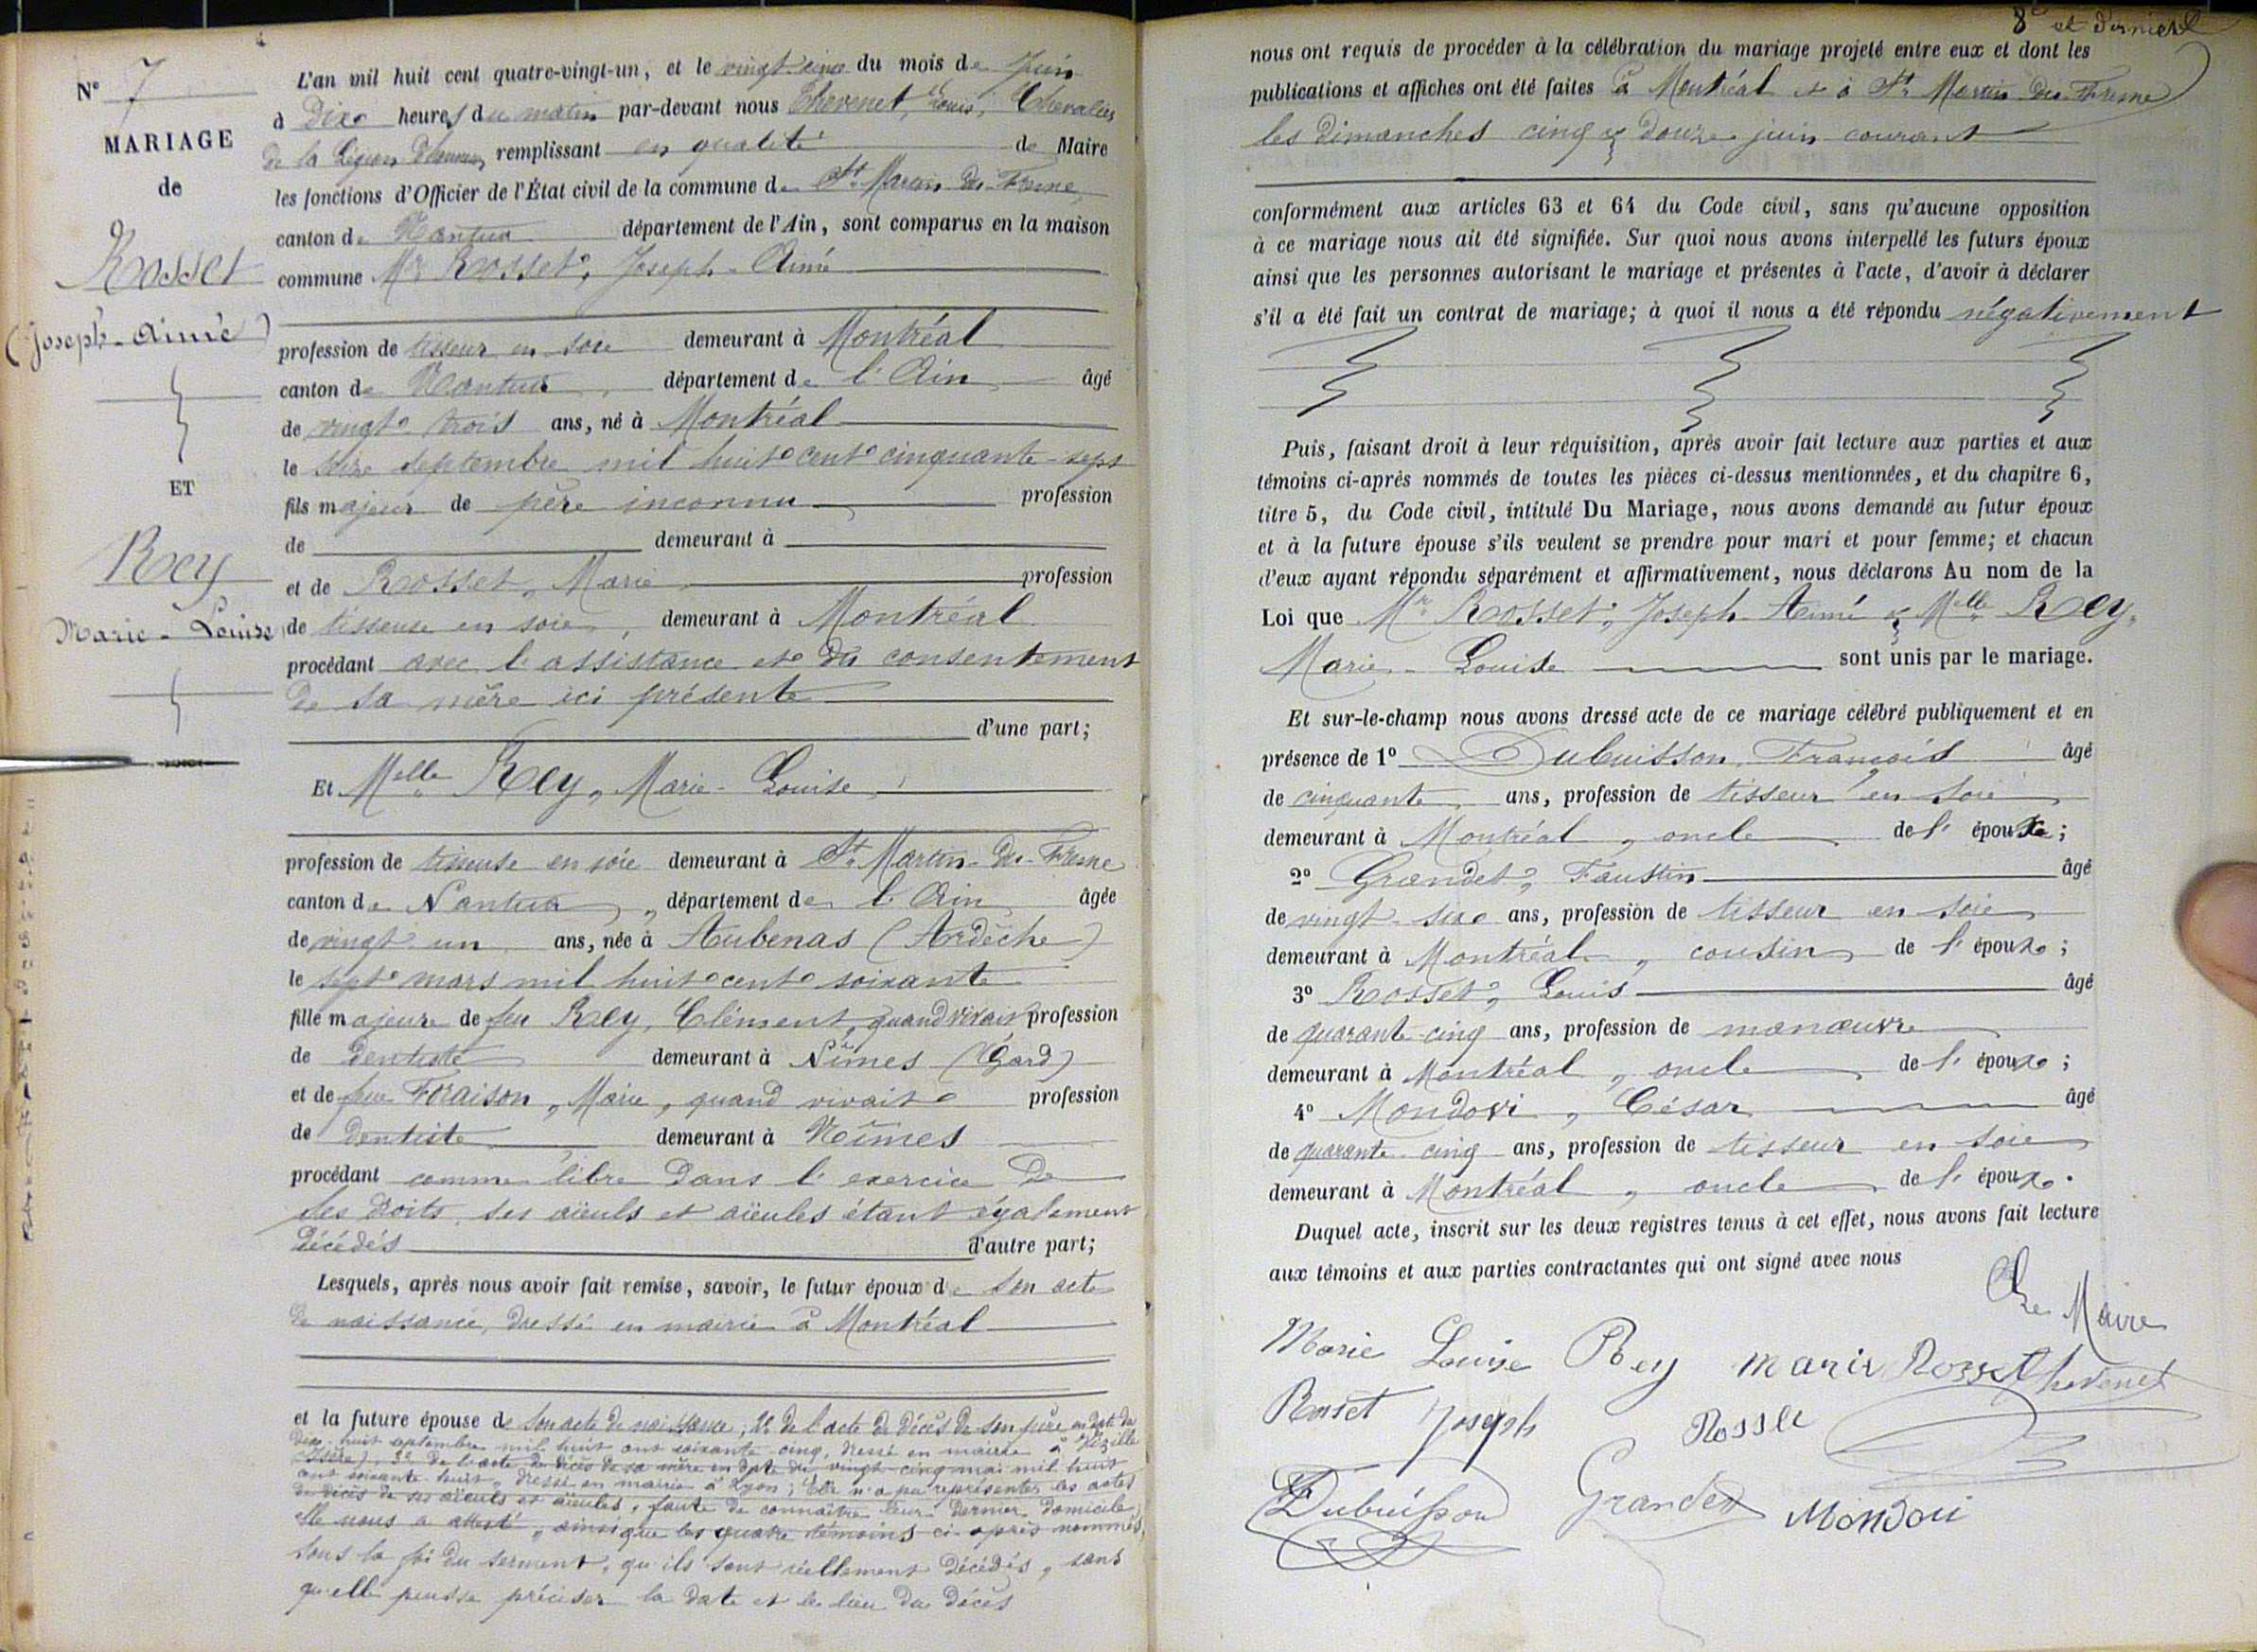 N° 7
MARIAGE
de
Rosset
(Joseph-Aimé)
ET
Rey
Marie-Louise
L'an mil huit cent quatre-vingt-un, et le vingt cinq du mois de Juin
à Dix heures du matin par-devant nous Thevenet, Louis, Chevalier
de la Légion d'honneur, remplissant en qualité de Maire
les fonctions d'Officier de l'État civil de la commune de St Martin du Fresne,
canton de Nantua département de l'Ain, sont comparus en la maison
commune Mr Rosset, Joseph-Aimé
profession de tisseur en soie demeurant à Montréal
canton de Nantua, département de l'Ain âgé
de vingt trois ans, né à Montréal
le seize septembre mil huit cent cinquante-sept
fils majeur de père inconnu profession
de demeurant à
et de Rosset, Marie profession
de tisseuse en soie, demeurant à Montréal
procédant avec l'assistance et du consentement
de sa mère ici présente
d'une part;
Et Melle Rey, Marie-Louise
profession de tisseuse en soie demeurant à St Martin-du-Fresne
canton de Nantua, département de l'Ain âgée
de vingt un ans, née à Aubenas (Ardèche)
le sept mars mil huit cent soixante
fille majeure de feu Rey, Clément, quand vivait profession
de dentiste demeurant à Nîmes (Gard)
et de feue Foraison, Marie, quand vivait profession
de dentiste demeurant à Nîmes
procédant comme libre dans l'exercice de
ses droits, ses aïeuls et aïeules étant également
décédés d'autre part;
Lesquels, après nous avoir fait remise, savoir, le futur époux de son acte
de naissance, dressé en mairie à Montréal
et la future épouse de son acte de naissance; 2° de l'acte de décès de son père en date du
dix-huit septembre mil huit cent soixante-cinq, dressé en mairie à Vizille
(Isère), 3° de l'acte de décès de sa mère en date du vingt-cinq mai mil huit
cent soixante-huit, dressé en mairie à Lyon; Elle n'a pu représenter les actes
de décès de ses aïeuls et aïeules, faute de connaître leur dernier domicile;
elle nous a attesté, ainsi que les quatre témoins ci-après nommés,
sous la foi du serment, qu'ils sont réellement décédés, sans
qu'elle puisse préciser la date et le lieu du décès
8e et dernier
nous ont requis de procéder à la célébration du mariage projeté entre eux et dont les
publications et affiches ont été faites à Montréal et à St Martin du Fresne
les dimanches cinq & douze juin courant
conformément aux articles 63 et 64 du Code civil, sans qu'aucune opposition
à ce mariage nous ait été signifiée. Sur quoi nous avons interpellé les futurs époux
ainsi que les personnes autorisant le mariage et présentes à l'acte, d'avoir à déclarer
s'il a été fait un contrat de mariage; à quoi il nous a été répondu négativement
Puis, faisant droit à leur réquisition, après avoir fait lecture aux parties et aux
témoins ci-après nommés de toutes les pièces ci-dessus mentionnées, et du chapitre 6,
titre 5, du Code civil, intitulé Du Mariage, nous avons demandé au futur époux
et à la future épouse s'ils veulent se prendre pour mari et pour femme; et chacun
d'eux ayant répondu séparément et affirmativement, nous déclarons Au nom de la
Loi que Mr Rosset, Joseph-Aimé & Melle Rey,
Marie-Louise sont unis par le mariage.
Et sur-le-champ nous avons dressé acte de ce mariage célébré publiquement et en
présence de 1° Dubuisson, François âgé
de cinquante ans, profession de tisseur en soie
demeurant à Montréal, oncle de l'époux;
2° Grandet, Faustin âgé
de vingt-six ans, profession de tisseur en soie
demeurant à Montréal, cousin de l'époux;
3° Rosset, Louis âgé
de quarante-cinq ans, profession de manœuvre
demeurant à Montréal, oncle de l'époux;
4° Mondovi, César âgé
de quarante-cinq ans, profession de tisseur en soie
demeurant à Montréal, oncle de l'époux.
Duquel acte, inscrit sur les deux registres tenus à cet effet, nous avons fait lecture
aux témoins et aux parties contractantes qui ont signé avec nous
Le Maire
Marie Louise Rey Marie Rosset Thevenet
Rosset Joseph Rosset
Dubuisson Grandet Mondovi